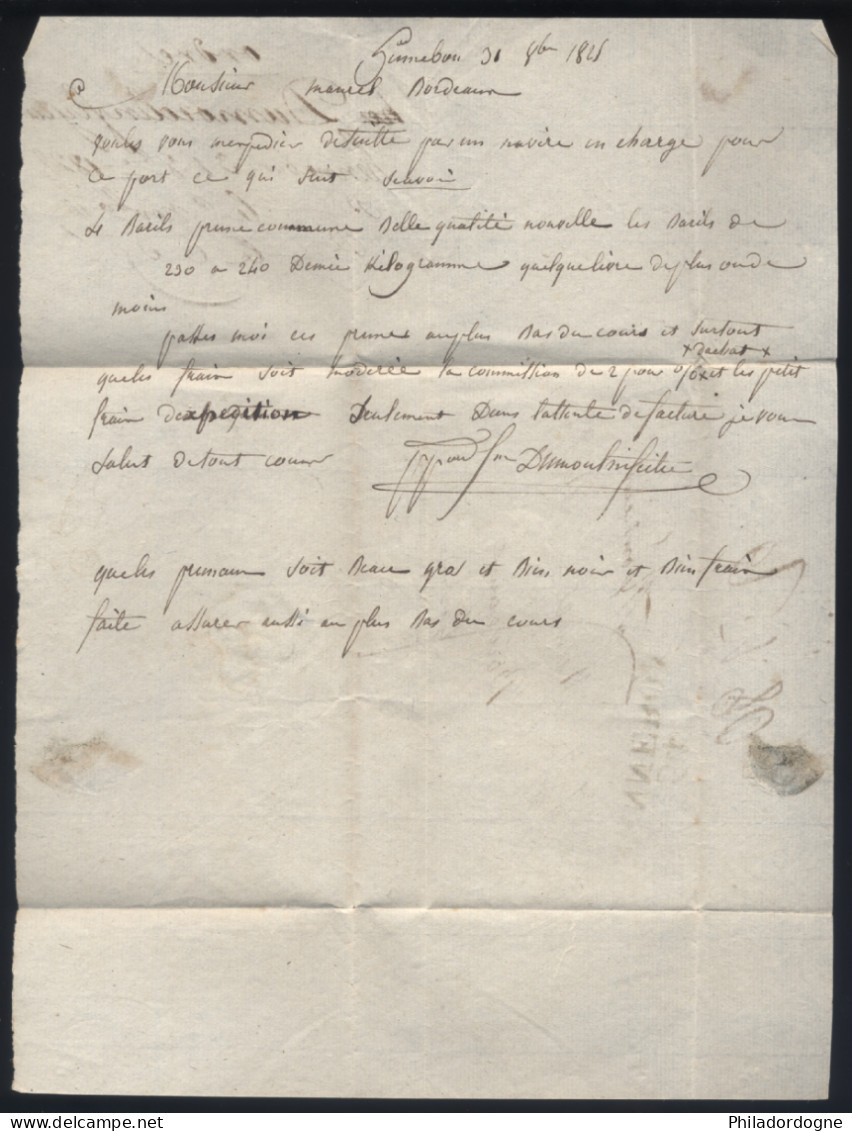 hennebon 31 8bre 1825
Monsieur mareil Bordeaux
voules vous mexpedier detsuitte par un navire en charge pour
ce port ce qui suit scavoir
4 Barils prune commune Belle qualité nouvelle les Barils de
230 a 240 Demie Kilogramme quelque livre deplus oude
moins
passes mois ces prunes auplus Bas du cours et surtout
queles frain soit moderée la commission de 2 pour %
x dachat x
et les petit
frain dexpedition Seulement Dans lattente de facture je vous
salut detout coeur
Dumoulin
queles pruneaux soit Beau gros et Bien noir et Bien frain
faite assurer aussi au plus Bas du cours
Philadordogne